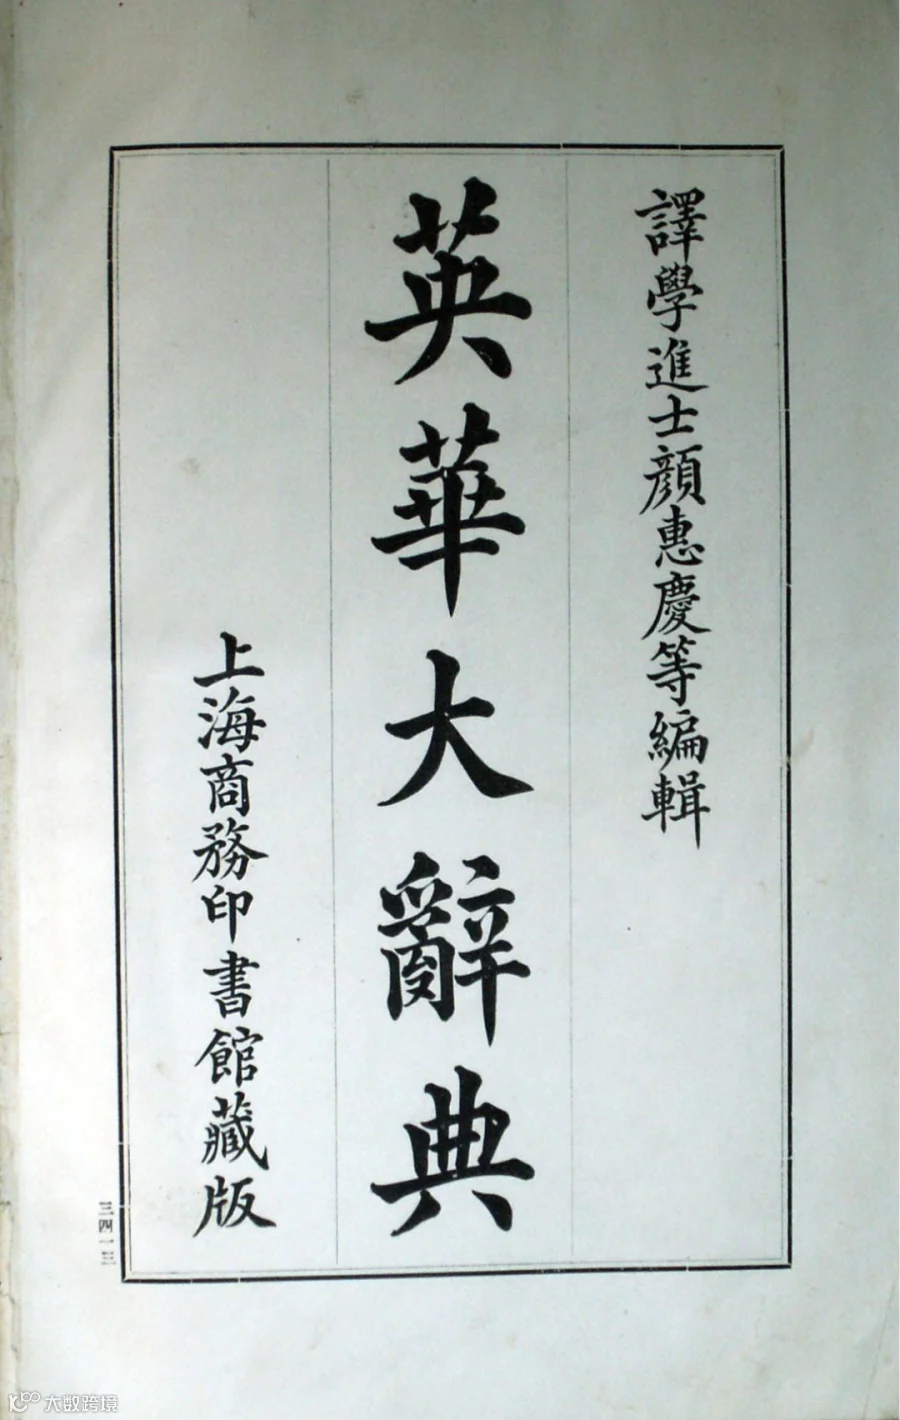 譯學進士顏惠慶等編輯
英華大辭典
上海商務印書館藏版
三四一三
大数跨境